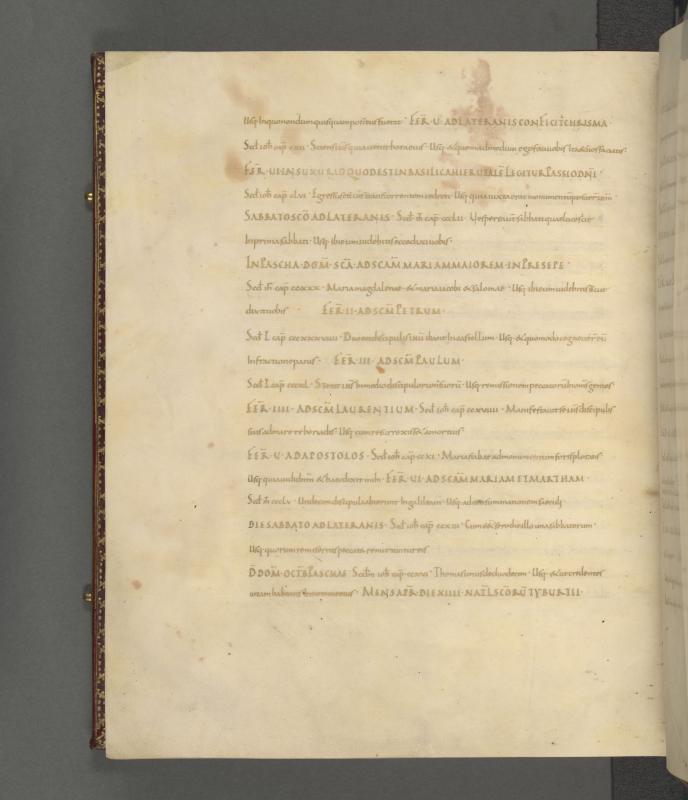 Usq: Inquonondumquisquampositusfuerat · FER̄ · U · ADLATERANIS CONFICIT̄ CHRISMA ·
Sed̄ ioh̄ cap̄ · Sciens ihs quiauenithoraeius · Usq: &quemadmodum egofeciuobis itaetuosfaciatis ·
FER̄ · UI INSUXURIO QUODESTINBASILICAHIERUSALĒ LEGITUR PASSIODN̄I ·
Sed̄ ioh̄ cap̄ clvi · Egressus trans torrentem cedron · Usq: quiaiuxtaerat monumentū
SABBATOSCŌ ADLATERANIS · Sed̄ m̄ cap̄ ccclii · Uespereautē sabbati quaelucescit
Inprimasabbati · Usq: ibieumuidebitis ecce dixiuobis ·
INPASCHA · DOM̄ · SCĀ · ADSCAM̄ MARIAMMAIOREM · INPRESEPE ·
Sed̄ m̄ cap̄ ccxxx · Mariamagdalenae &maria iacobi &salomae · Usq: ibieumuidebitis sicut
dixituobis · FER̄ · II · ADSCM̄ PETRUM ·
Sed̄ L cap̄ cccxxxviiii · Duoexdiscipulis ihū ibant Incastellum · Usq: &quomodocognouer̄ eū
Infractionepanis · FER̄ · III · ADSCM̄ PAULUM ·
Sed̄ L cap̄ cccxl · Stetit ihs Inmediodiscipulorum suorū · Usq: remissionem peccatorū Inomnes gentes
FER̄ · IIII · ADSCM̄ LAURENTIUM · Sed̄ ioh̄ cap̄ ccxviiii · Manifestauit se ihs discipulis
suis admare tiberiadis · Usq: cumresurrexiss& amortuis ·
FER̄ · U · ADAPOSTOLOS · Sed̄ ioh̄ cap̄ ccxi · Mariastabat admonumentum foris plorans
Usq: quiauididn̄m &haecdixit mihi · FER̄ · UI · ADSCAM̄ MARIAM ETMARTHAM ·
Sed̄ m̄ ccclv · Undecim discipuli abierunt Ingalileam · Usq: adconsummationem saeculi
DIESABBATO ADLATERANIS · Sed̄ ioh̄ cap̄ ccxiii · Cumess&serodieillo unasabbatorum ·
Usq: quorum remiseritis peccata remittuntureis
D̄ DOM̄ · OCTB̄ PASCHAE · Sed̄ ioh̄ cap̄ · Thomasunusdeduodecim · Usq: &utcredentes
uitam habeatis Innomineeius · MENS̄ APR̄ · DIEXIIII · NAT̄L SC̄ORŪ TYBURTII ·